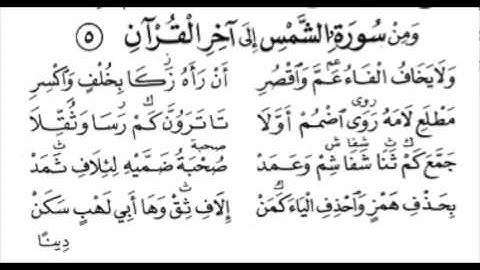 وَمِنْ سُورَةِ الشَّمْسِ إِلَى آخِرِ الْقُرْآنِ ٥
وَلَا يَخَافُ الْفَاءُ عَمَّ وَاقْصُرِ أَنْ رَأَهُ زَكَا بِخُلْفٍ وَاكْسِرِ
روى
مَطْلَعِ لَامَهُ رَوَى اضْمُمْ أَوَّلَا تَا تَرَوُنَّ كَمْ رَسَا وَثُقِّلَا
ك ث شفا ش صحبة
جَمَّعَ كَمْ ثَنَا شَفَا شِمْ وَعَمَدْ صُحْبَةُ ضَمَّيْهِ لِئِلَافِ ثَمَدْ
بِحَذْفِ هَمْزٍ وَاحْذِفِ الْيَاءَ كَمَنْ إِلَافِ ثِقْ وَهَا أَبِي لَهْبٍ سَكَنْ
دِينًا